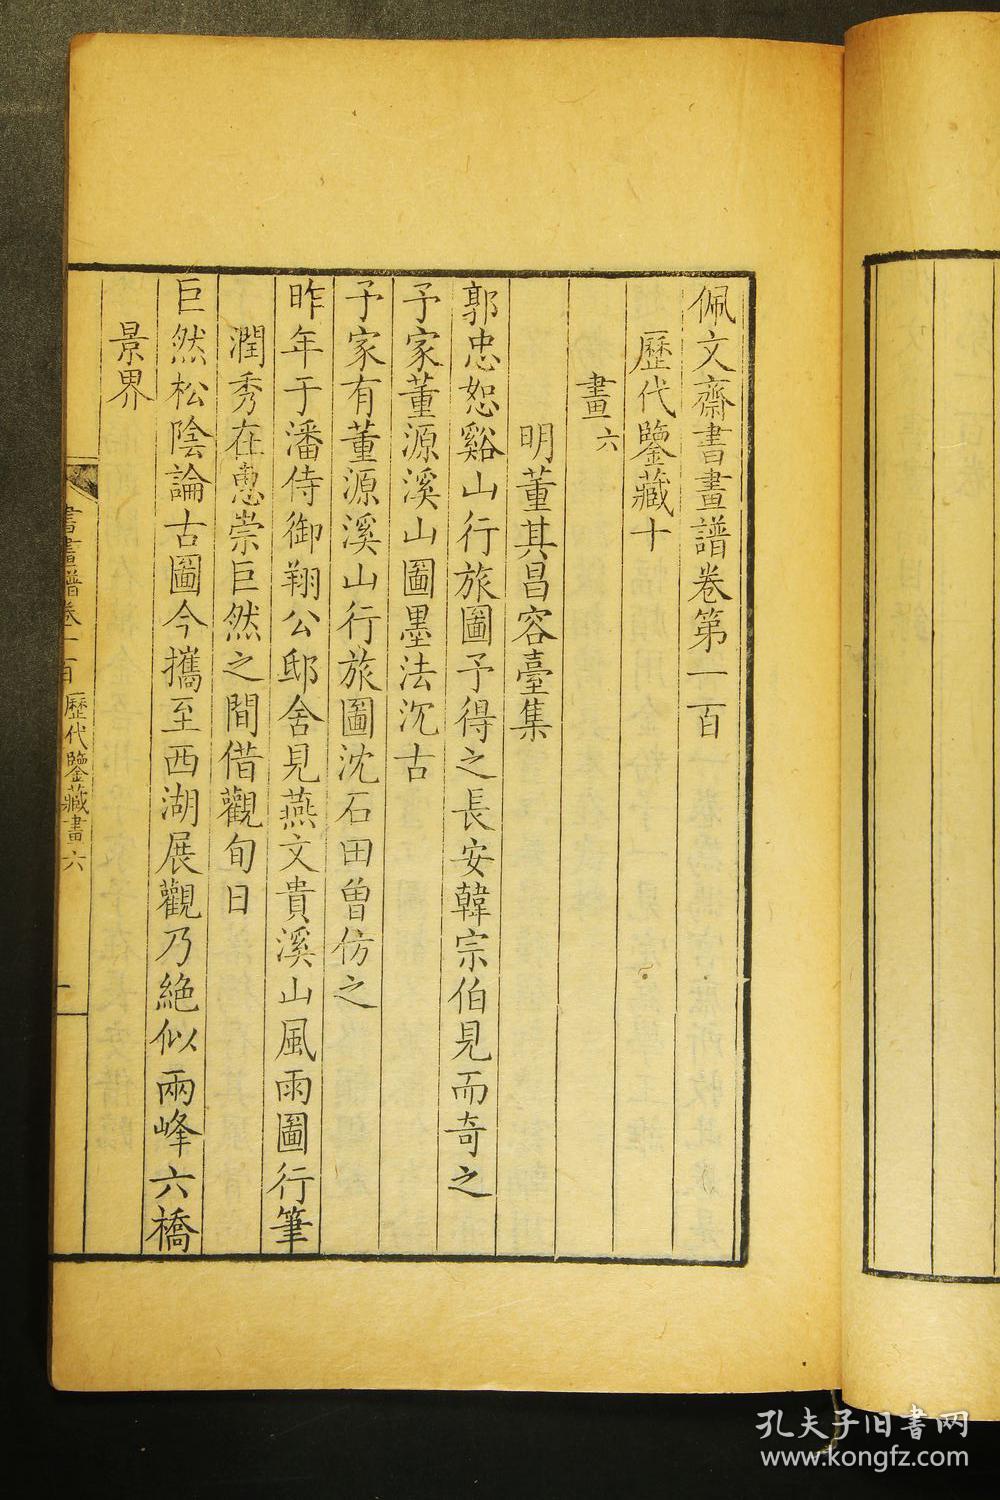 佩文齋書畫譜卷第一百
歷代鑒藏十
畫六
明董其昌容臺集
郭忠恕谿山行旅圖予得之長安韓宗伯見而奇之
予家董源溪山圖墨法沉古
予家有董源溪山行旅圖沈石田曾仿之
昨年于潘侍御翔公邸舍見燕文貴溪山風雨圖行筆
潤秀在惠崇巨然之間借觀旬日
巨然松陰論古圖今攜至西湖展觀乃絶似兩峰六橋
景界
書畫譜卷一百 歷代鑒藏畫六
一
孔夫子旧書网
www.kongfz.com